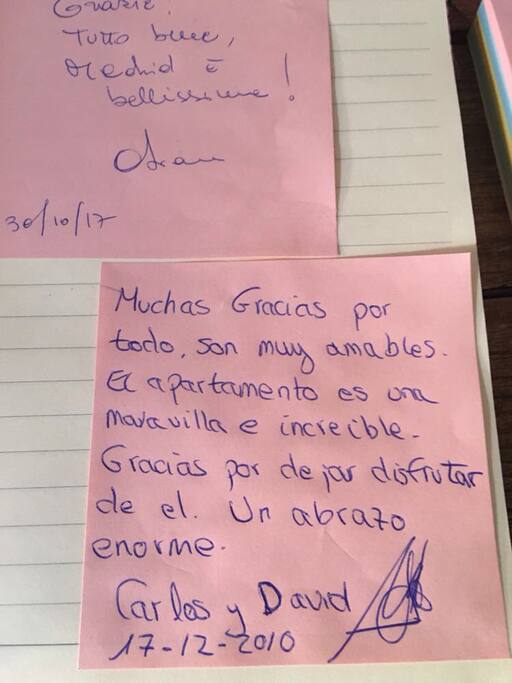 Grazie!
Tutto bene,
Madrid è
bellissima!
30/10/17
Muchas Gracias por
todo, son muy amables.
El apartamento es una
maravilla e increible.
Gracias por dejar disfrutar
de el. Un abrazo
enorme.
Carlos y David
17-12-2010